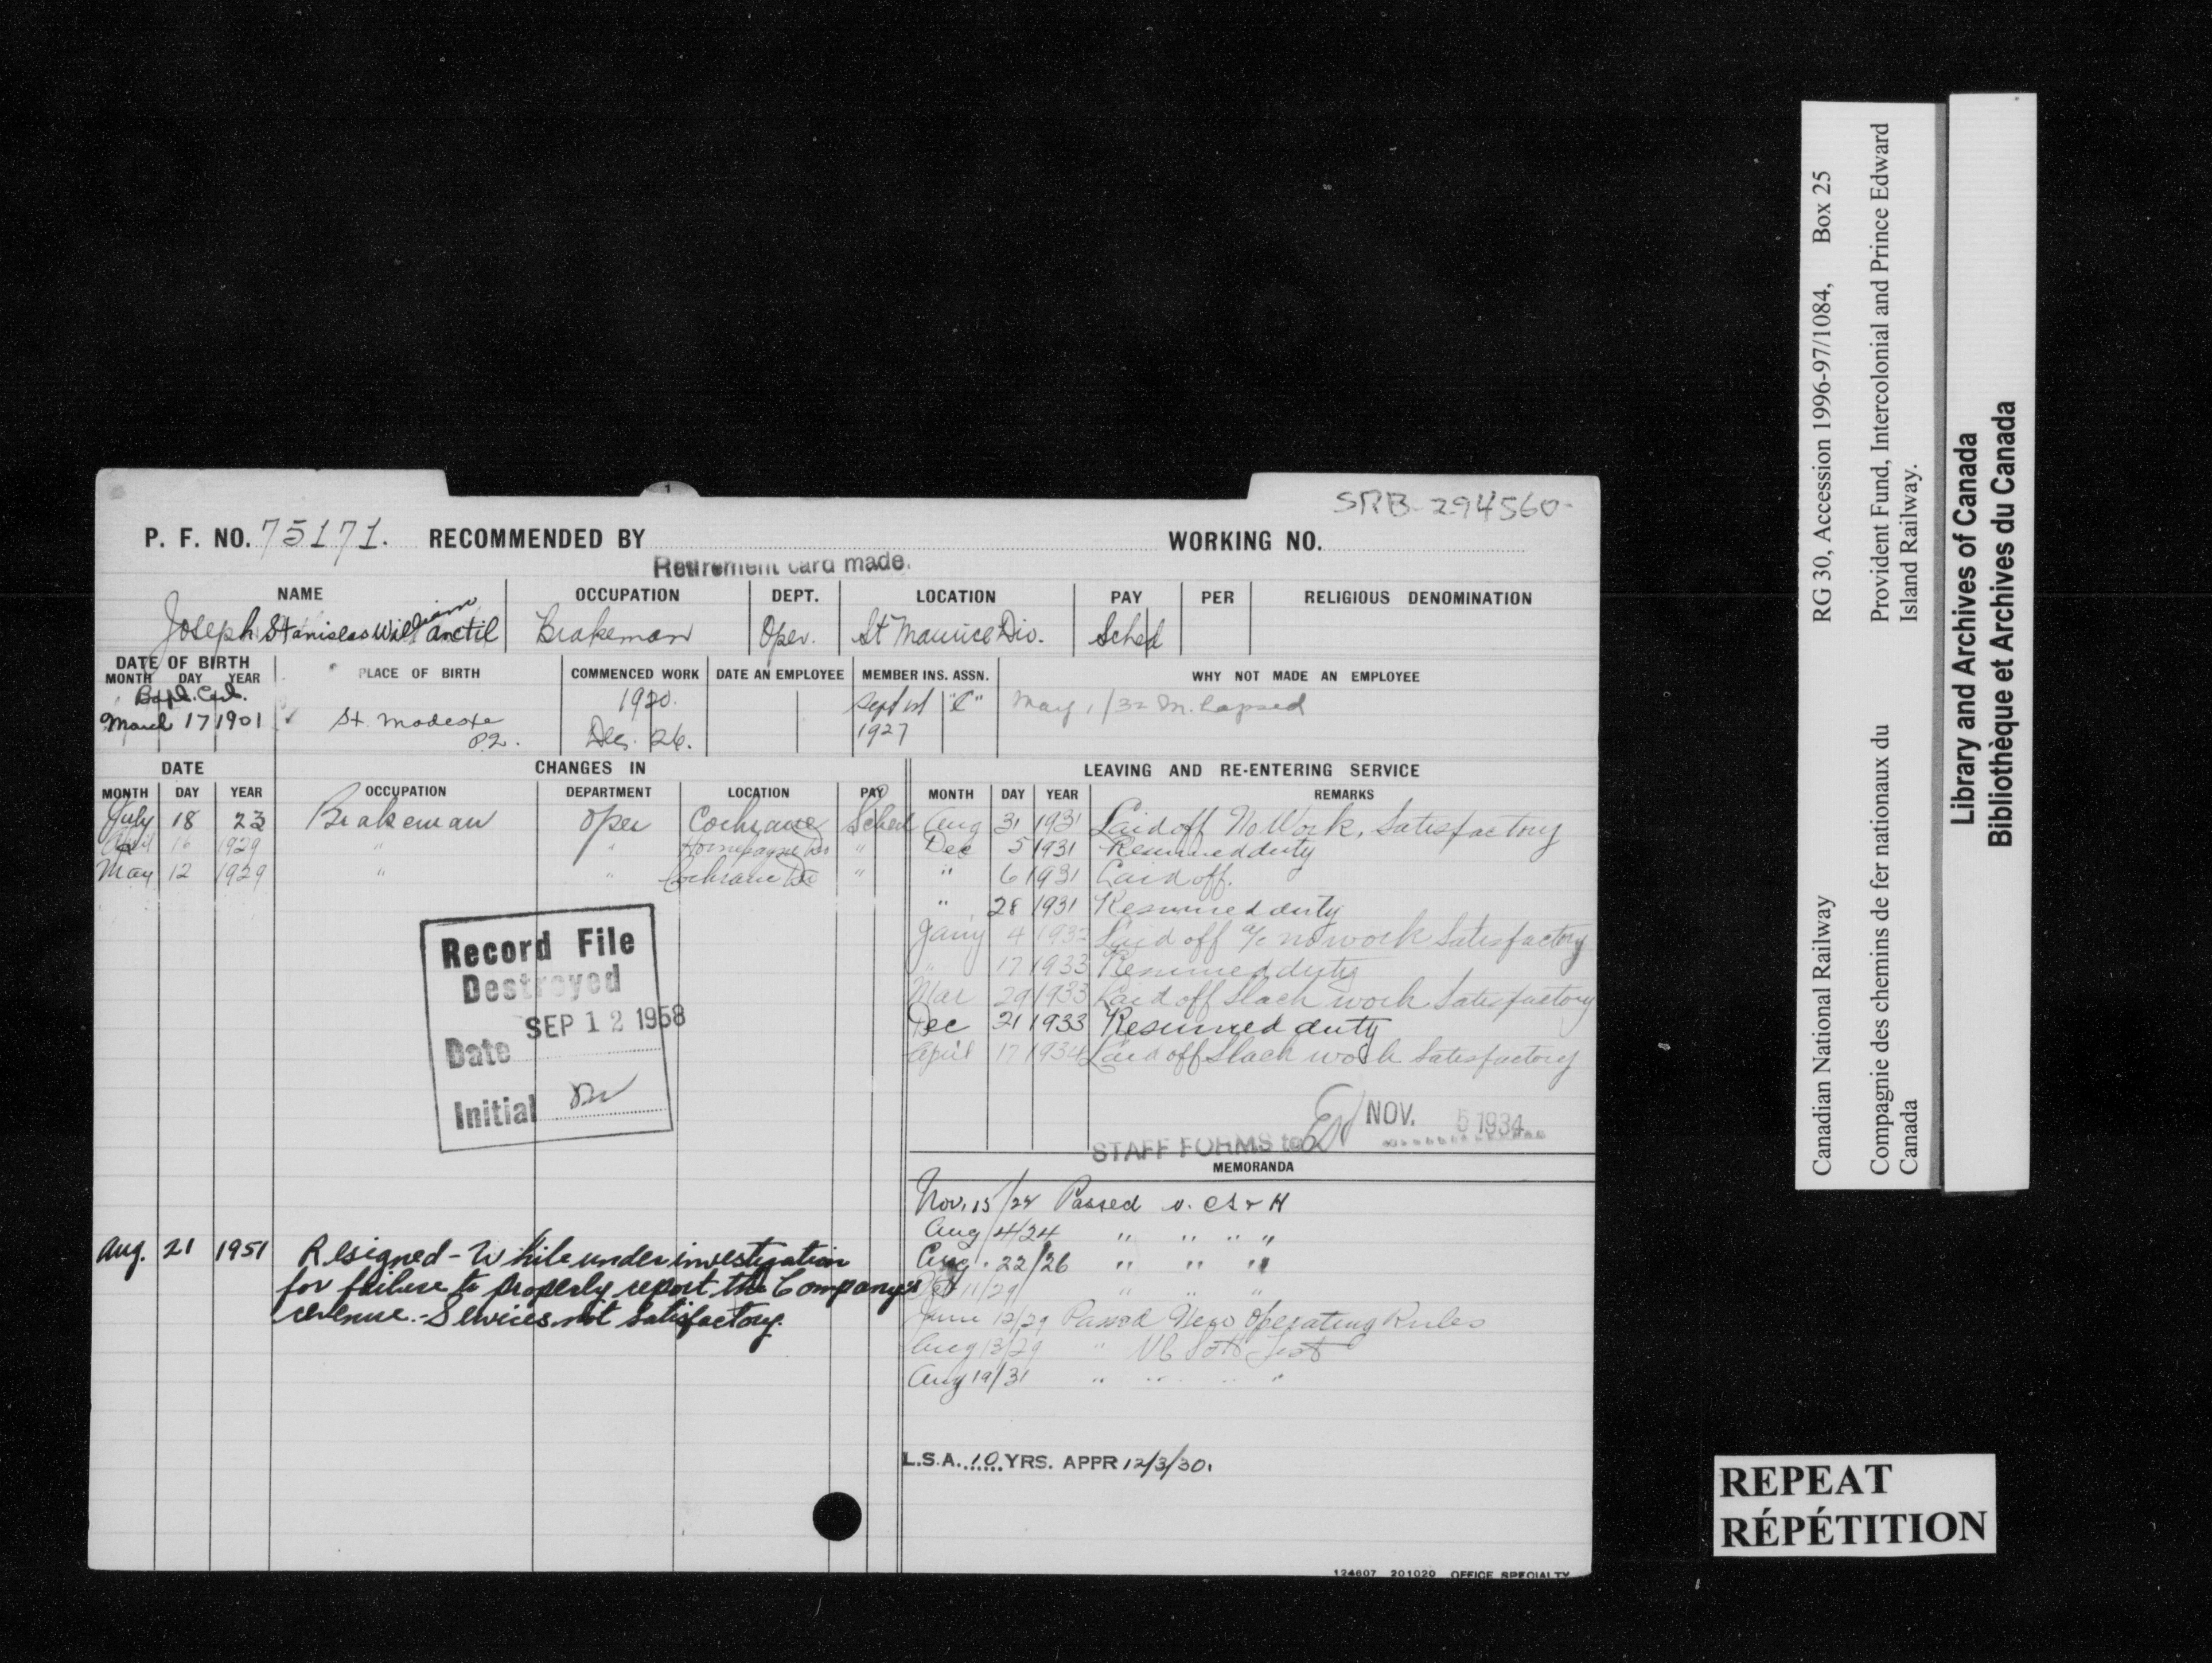 SRB-294560-
P. F. NO. 75171. RECOMMENDED BY WORKING NO.
Retirement card made.
NAME OCCUPATION DEPT. LOCATION PAY PER RELIGIOUS DENOMINATION
Joseph Stanislas William Anctil Brakeman Oper. St Maurice Div. Sched
DATE OF BIRTH PLACE OF BIRTH COMMENCED WORK DATE AN EMPLOYEE MEMBER INS. ASSN. WHY NOT MADE AN EMPLOYEE
MONTH DAY YEAR
Bapt. Cert. 1920. Sept 1st "C" May 1/32 M. Lapsed
March 17 1901 St. Modeste P.Q. Dec. 26. 1927
DATE CHANGES IN LEAVING AND RE-ENTERING SERVICE
MONTH DAY YEAR OCCUPATION DEPARTMENT LOCATION PAY MONTH DAY YEAR REMARKS
July 18 23 Brakeman Oper Cochrane Sched
April 16 1929 " " Hornepayne Div "
May 12 1929 " " Cochrane Div "
Aug 31 1931 Laid off No Work, Satisfactory
Dec 5 1931 Resumed duty
" 6 1931 Laid off.
" 28 1931 Resumed duty
Jany 4 1932 Laid off a/c no work Satisfactory
" 17 1933 Resumed duty
Mar 29 1933 Laid off Slack work Satisfactory
Dec 21 1933 Resumed duty
April 17 1934 Laid off Slack work Satisfactory
Record File
Destroyed
SEP 12 1958
Date
Initial
STAFF FORMS to NOV. 5 1934
MEMORANDA
Nov. 15/22 Passed v. CS & H
Aug 4/24 " " " "
Aug. 22/26 " " "
11/29 " " "
June 12/29 Passed New Operating Rules
Aug 13/29 "
Aug 19/31 " " " "
Aug. 21 1951 Resigned - While under investigation
for failure to properly report the Company's
revenue. - Services not satisfactory.
L.S.A. 10 YRS. APPR 12/3/30.
124607 201020 OFFICE SPECIALTY
Canadian National Railway RG 30, Accession 1996-97/1084, Box 25
Compagnie des chemins de fer nationaux du Provident Fund, Intercolonial and Prince Edward
Canada Island Railway.
Library and Archives of Canada
Bibliothèque et Archives du Canada
REPEAT
RÉPÉTITION